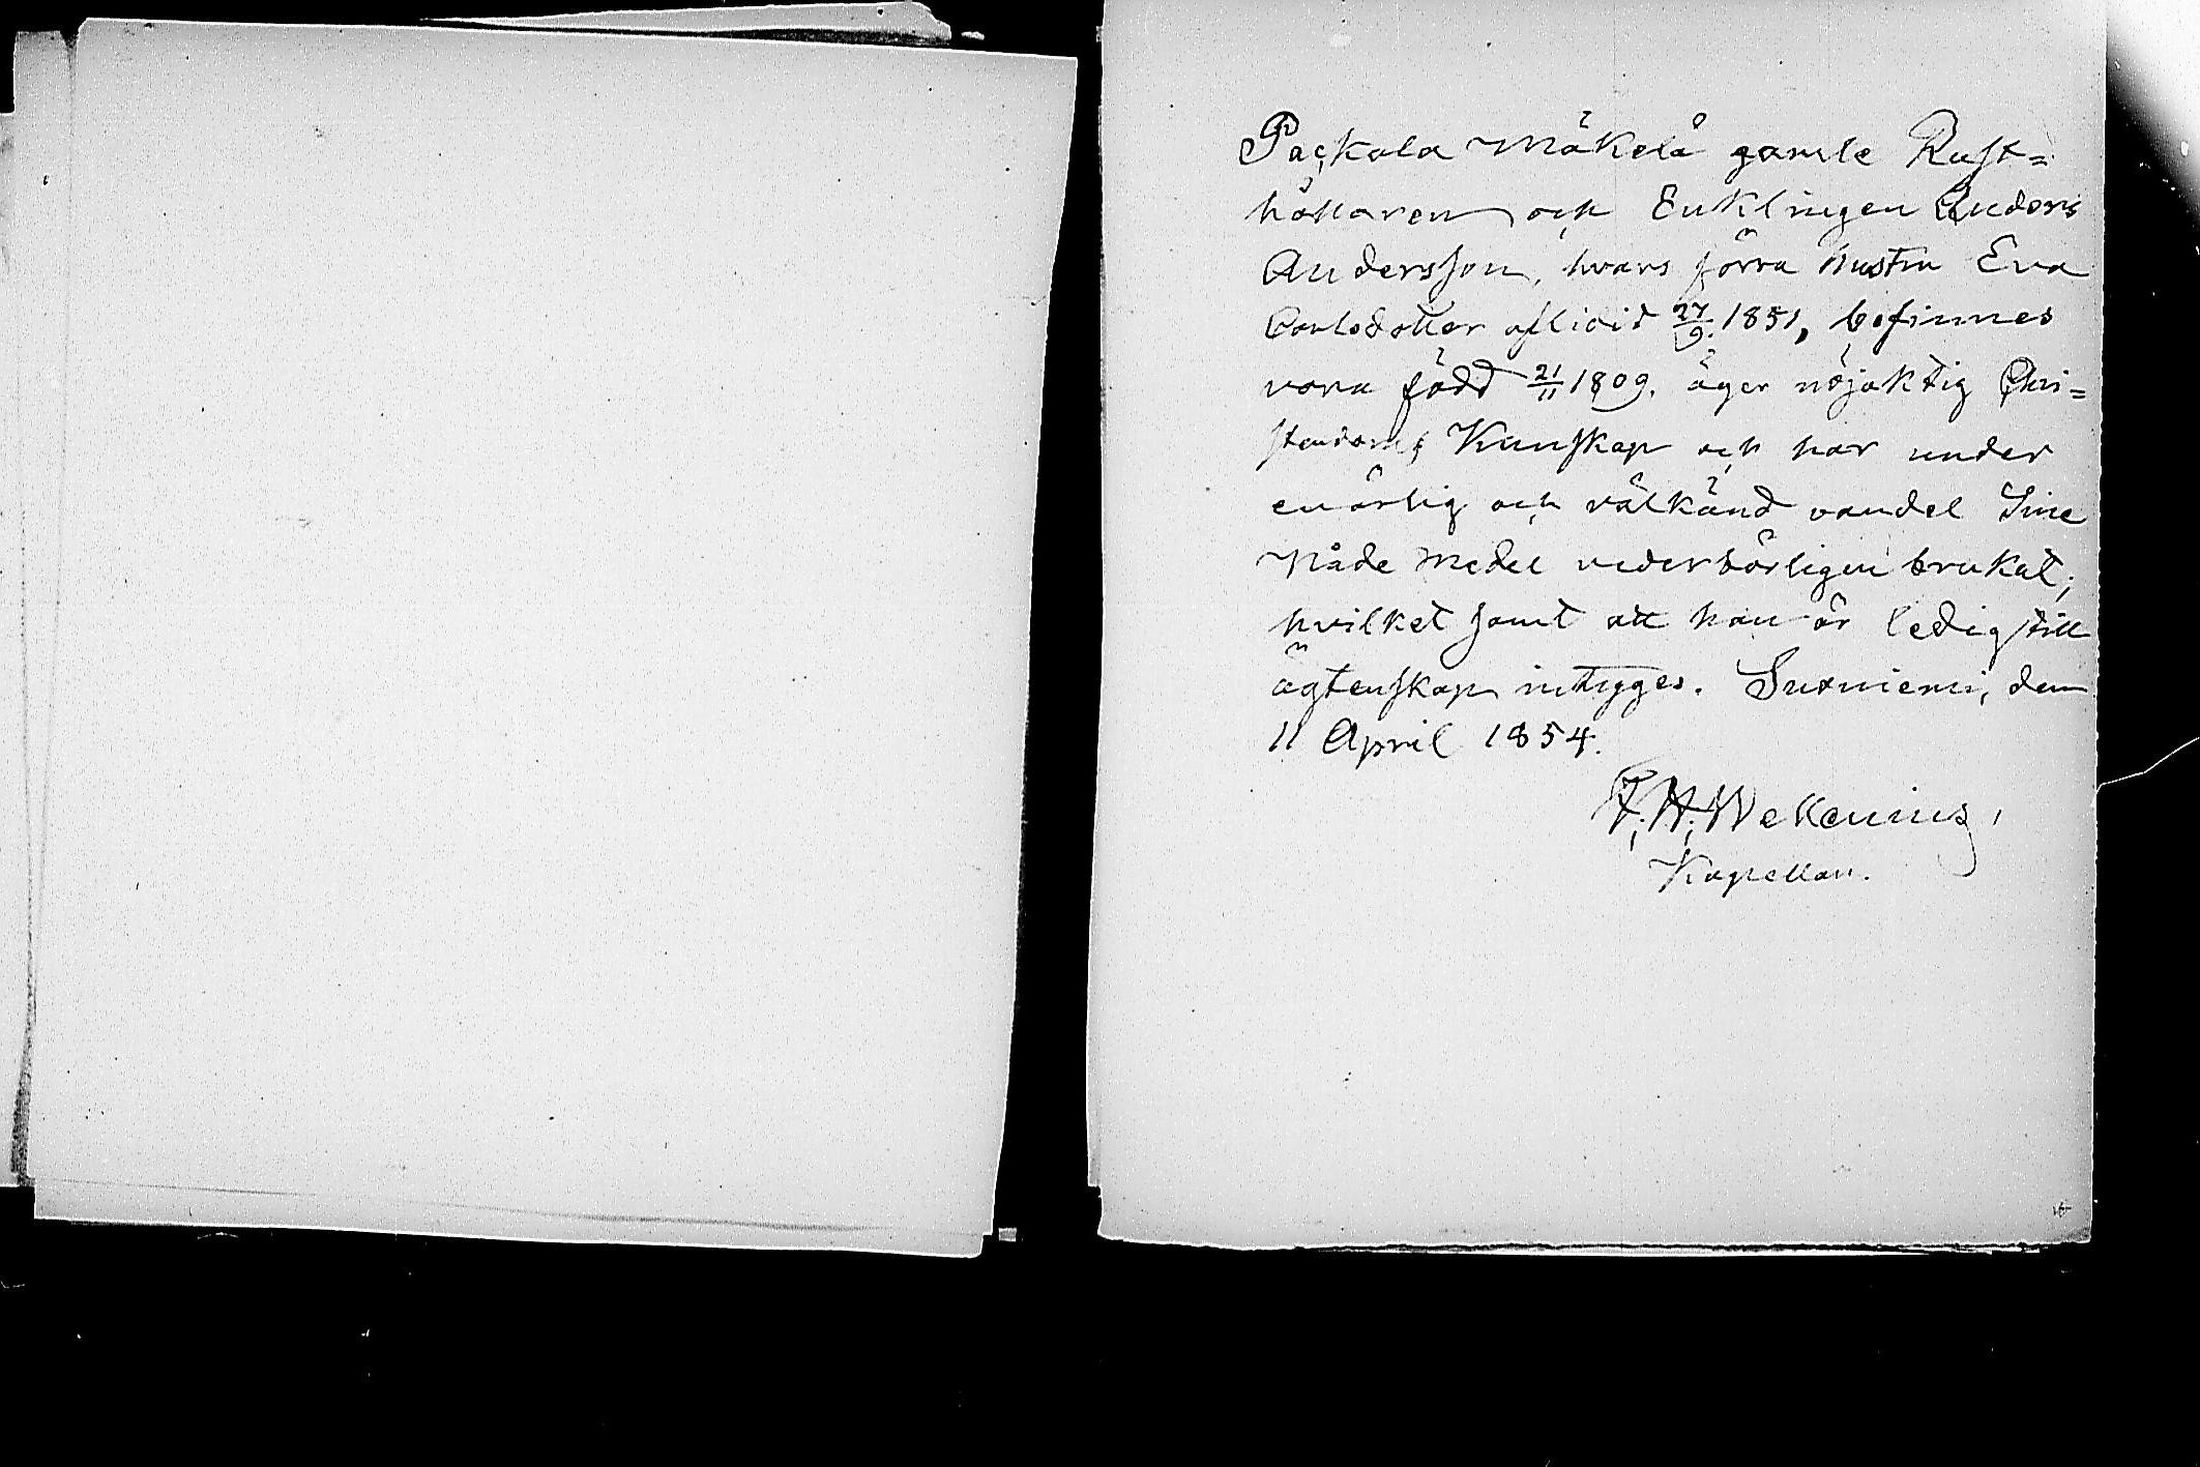 Packala Mäkelä gamle Rust=
hållaren och Enklingen Anders
Andersson, hvars förra hustru Eva
Carlsdotter aflidit 27/9 1851, befinnes
vara född 21/11 1809. äger nöjaktig Chri=
stendoms Kunskap och har under
en ärlig och välkänd vandel Sine
Nåde Medel vederbörligen brukat;
hvilket samt att han är ledig till
ägtenskap intygges. Suoniemi, den
11 April 1854.
F. H. Wellenius,
Kapellan.